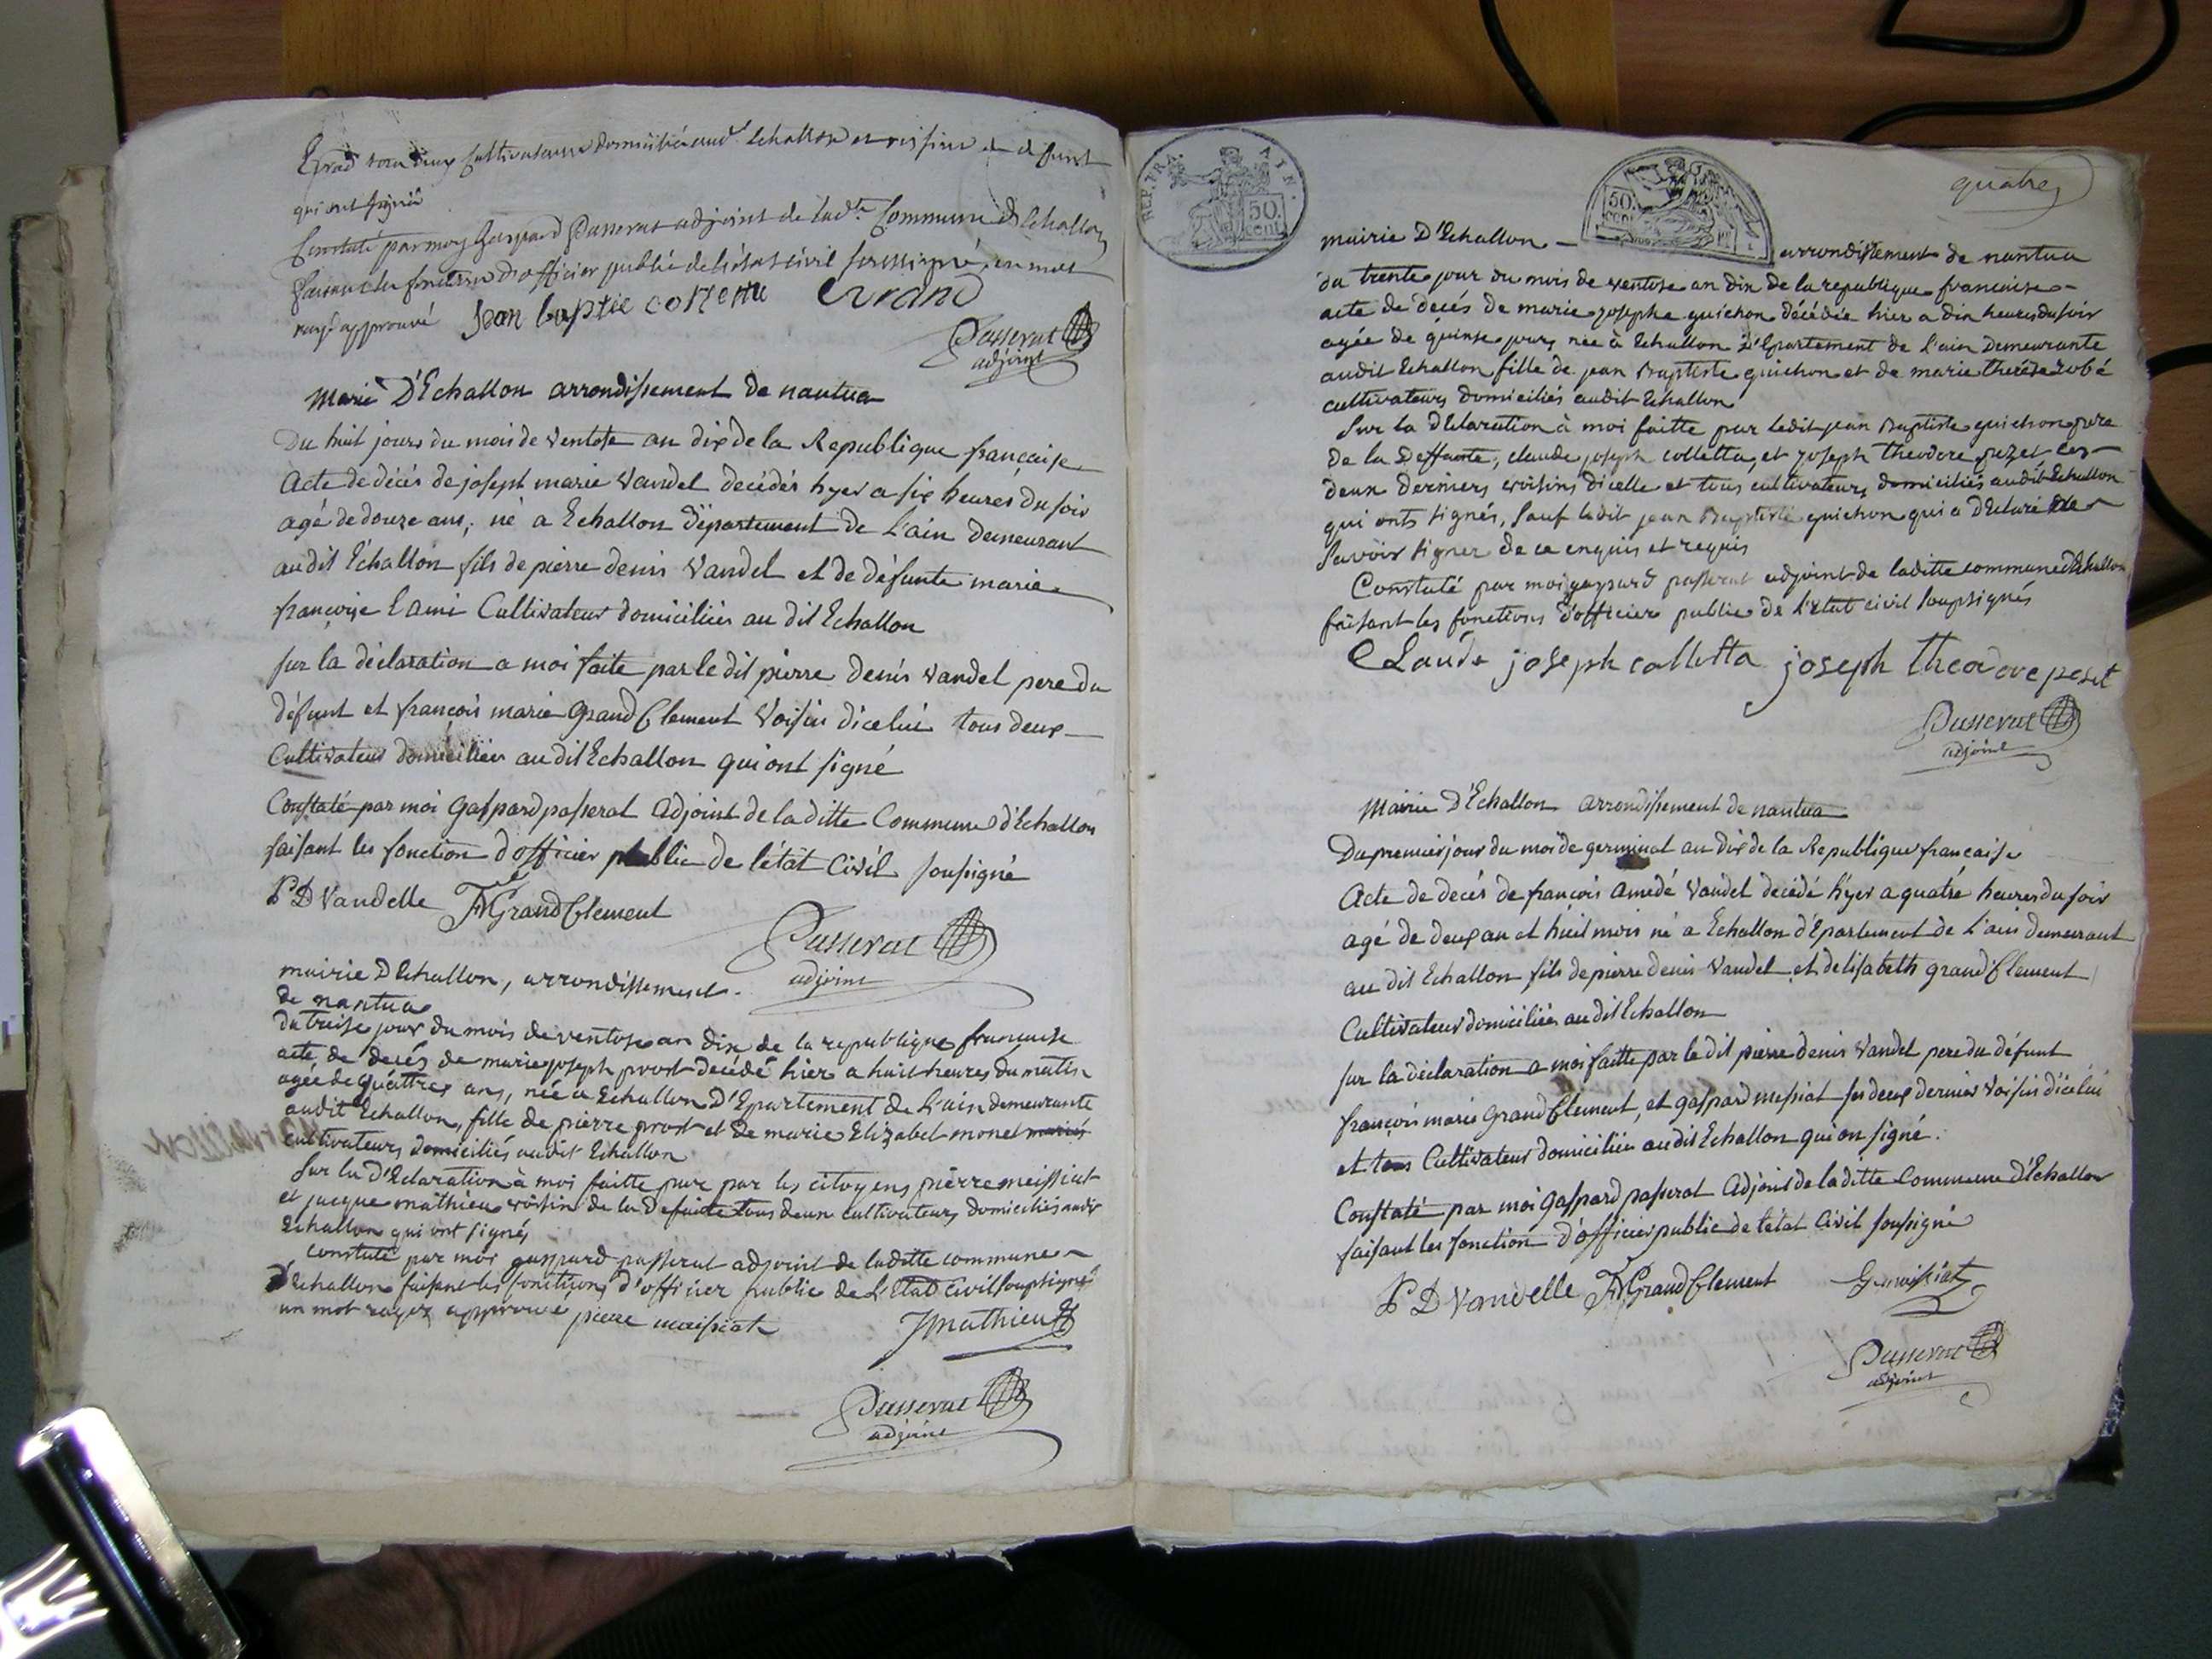 tous deux Cultivateurs domiciliés aud.t Echallon et voisins du defunt
qui ont signé
Constaté par moy Gaspard Passerat adjoint de lad.te Commune d'Echallon
faisant les fonctions d'officier public de l'état civil soussigné, un mot
rayé approuvé Jean baptte Evrand
Passerat
adjoint
Marie D'Echallon arrondissement de nantua
Du huit jours du mois de Ventose an dix de la Republique française
Acte de décés de joseph marie Vandel decédés hyer a six heures du soir
agé de douze ans, né a Echallon département de L'ain demeurant
au dit Echallon fils de pierre denis Vandel et de défunte marie
françoise Lami Cultivateur domiciliés au dit Echallon
sur la déclaration a moi faite par le dit pierre denis Vandel pere du
défunt et françois marie Grand Clement Voisin dicelui tous deux
Cultivateur domiciliés au dit Echallon qui ont signé
Constaté par moi Gaspard passerat Adjoint de la ditte Commune d'Echallon
faisant les fonction d'officier public de l'état Civil soussigné
P D Vandelle FM Grand Clement
Passerat
adjoint
mairie D Echallon, arrondissement
de nantua
du treise jour du mois de ventose an dix de la republique francaise
acte de decés de marie joseph prost decédé hier a huit heures du matin
agée de quattre ans, née a Echallon D'Epartement de L'ain demeurante
audit Echallon, fille de pierre prost et de marie Elizabet monet mariés
cultivateurs domiciliés audit Echallon
Sur la d'Eclaration à moi faitte par par les citoyens pierre meissiat
et jacque mathieu voisin de la defunte tous deux cultivateurs domiciliés audit
Echallon qui ont signés
constaté par moi gaspard passerat adjoint de laditte commune
d'Echallon faisant les fonctions d'officier public de L'Etat civil soupsignés
un mot rayez approuvé pierre maissiat Jmathieu
Passerat
adjoint
REP. FRA. AIN.
50. cent.
50. cent
quatre
mairie D'Echallon arrondissement de nantua
du trente jour du mois de ventose an dix de la republique francaise
acte de decés de marie josephe guichon décédée hier a dix heures du soir
agée de quinse jours née à Echallon d'Epartement de l'ain demeurante
audit Echallon fille de jean Baptiste guichon et de marie therése robé
cultivateurs domiciliés audit Echallon
Sur la d'Eclaration à moi faitte par ledit jean Baptiste guichon pere
de la Deffunte, claude joseph colletta, et joseph theodore pezet les
deux derniers voisins dicelle et tous cultivateurs domiciliés audit Echallon
qui onts signés, sauf ledit jean Baptiste guichon qui a d'Eclaré ne
savoir signer de ce enquis et requis
Constaté par moi gaspard passerat adjoint de laditte commune d'Echallon
faisant les fonctions d'officier public de l'Etat civil soupsignés
Claude joseph colletta joseph theodore peset
Passerat
adjoint
Mairie D'Echallon arrondissement de nantua
Du premier jour du moi de germinal an dix de la Republique francaise
Acte de decés de françois Amedé Vandel decédé hyer a quatre heures du soir
agé de deux an et huit mois né a Echallon d'Epartement de L'ain demeurant
au dit Echallon fils de pierre denis Vandel et delisabeth grand Clement
Cultivateur domiciliés au dit Echallon
sur la déclaration a moi faitte par le dit pierre denis Vandel pere du défunt
françois marie Grand Clement, et gaspard messiat les deux dernier Voisin dicelui
et tous Cultivateur domiciliés au dit Echallon qui on signé.
Constaté par moi Gaspard passerat Adjoint de la ditte Commune d'Echallon
faisant les fonction d'officier public de l'état Civil soussigné
P D Vandelle FM Grand Clement G. maissiat
Passerat
adjoint